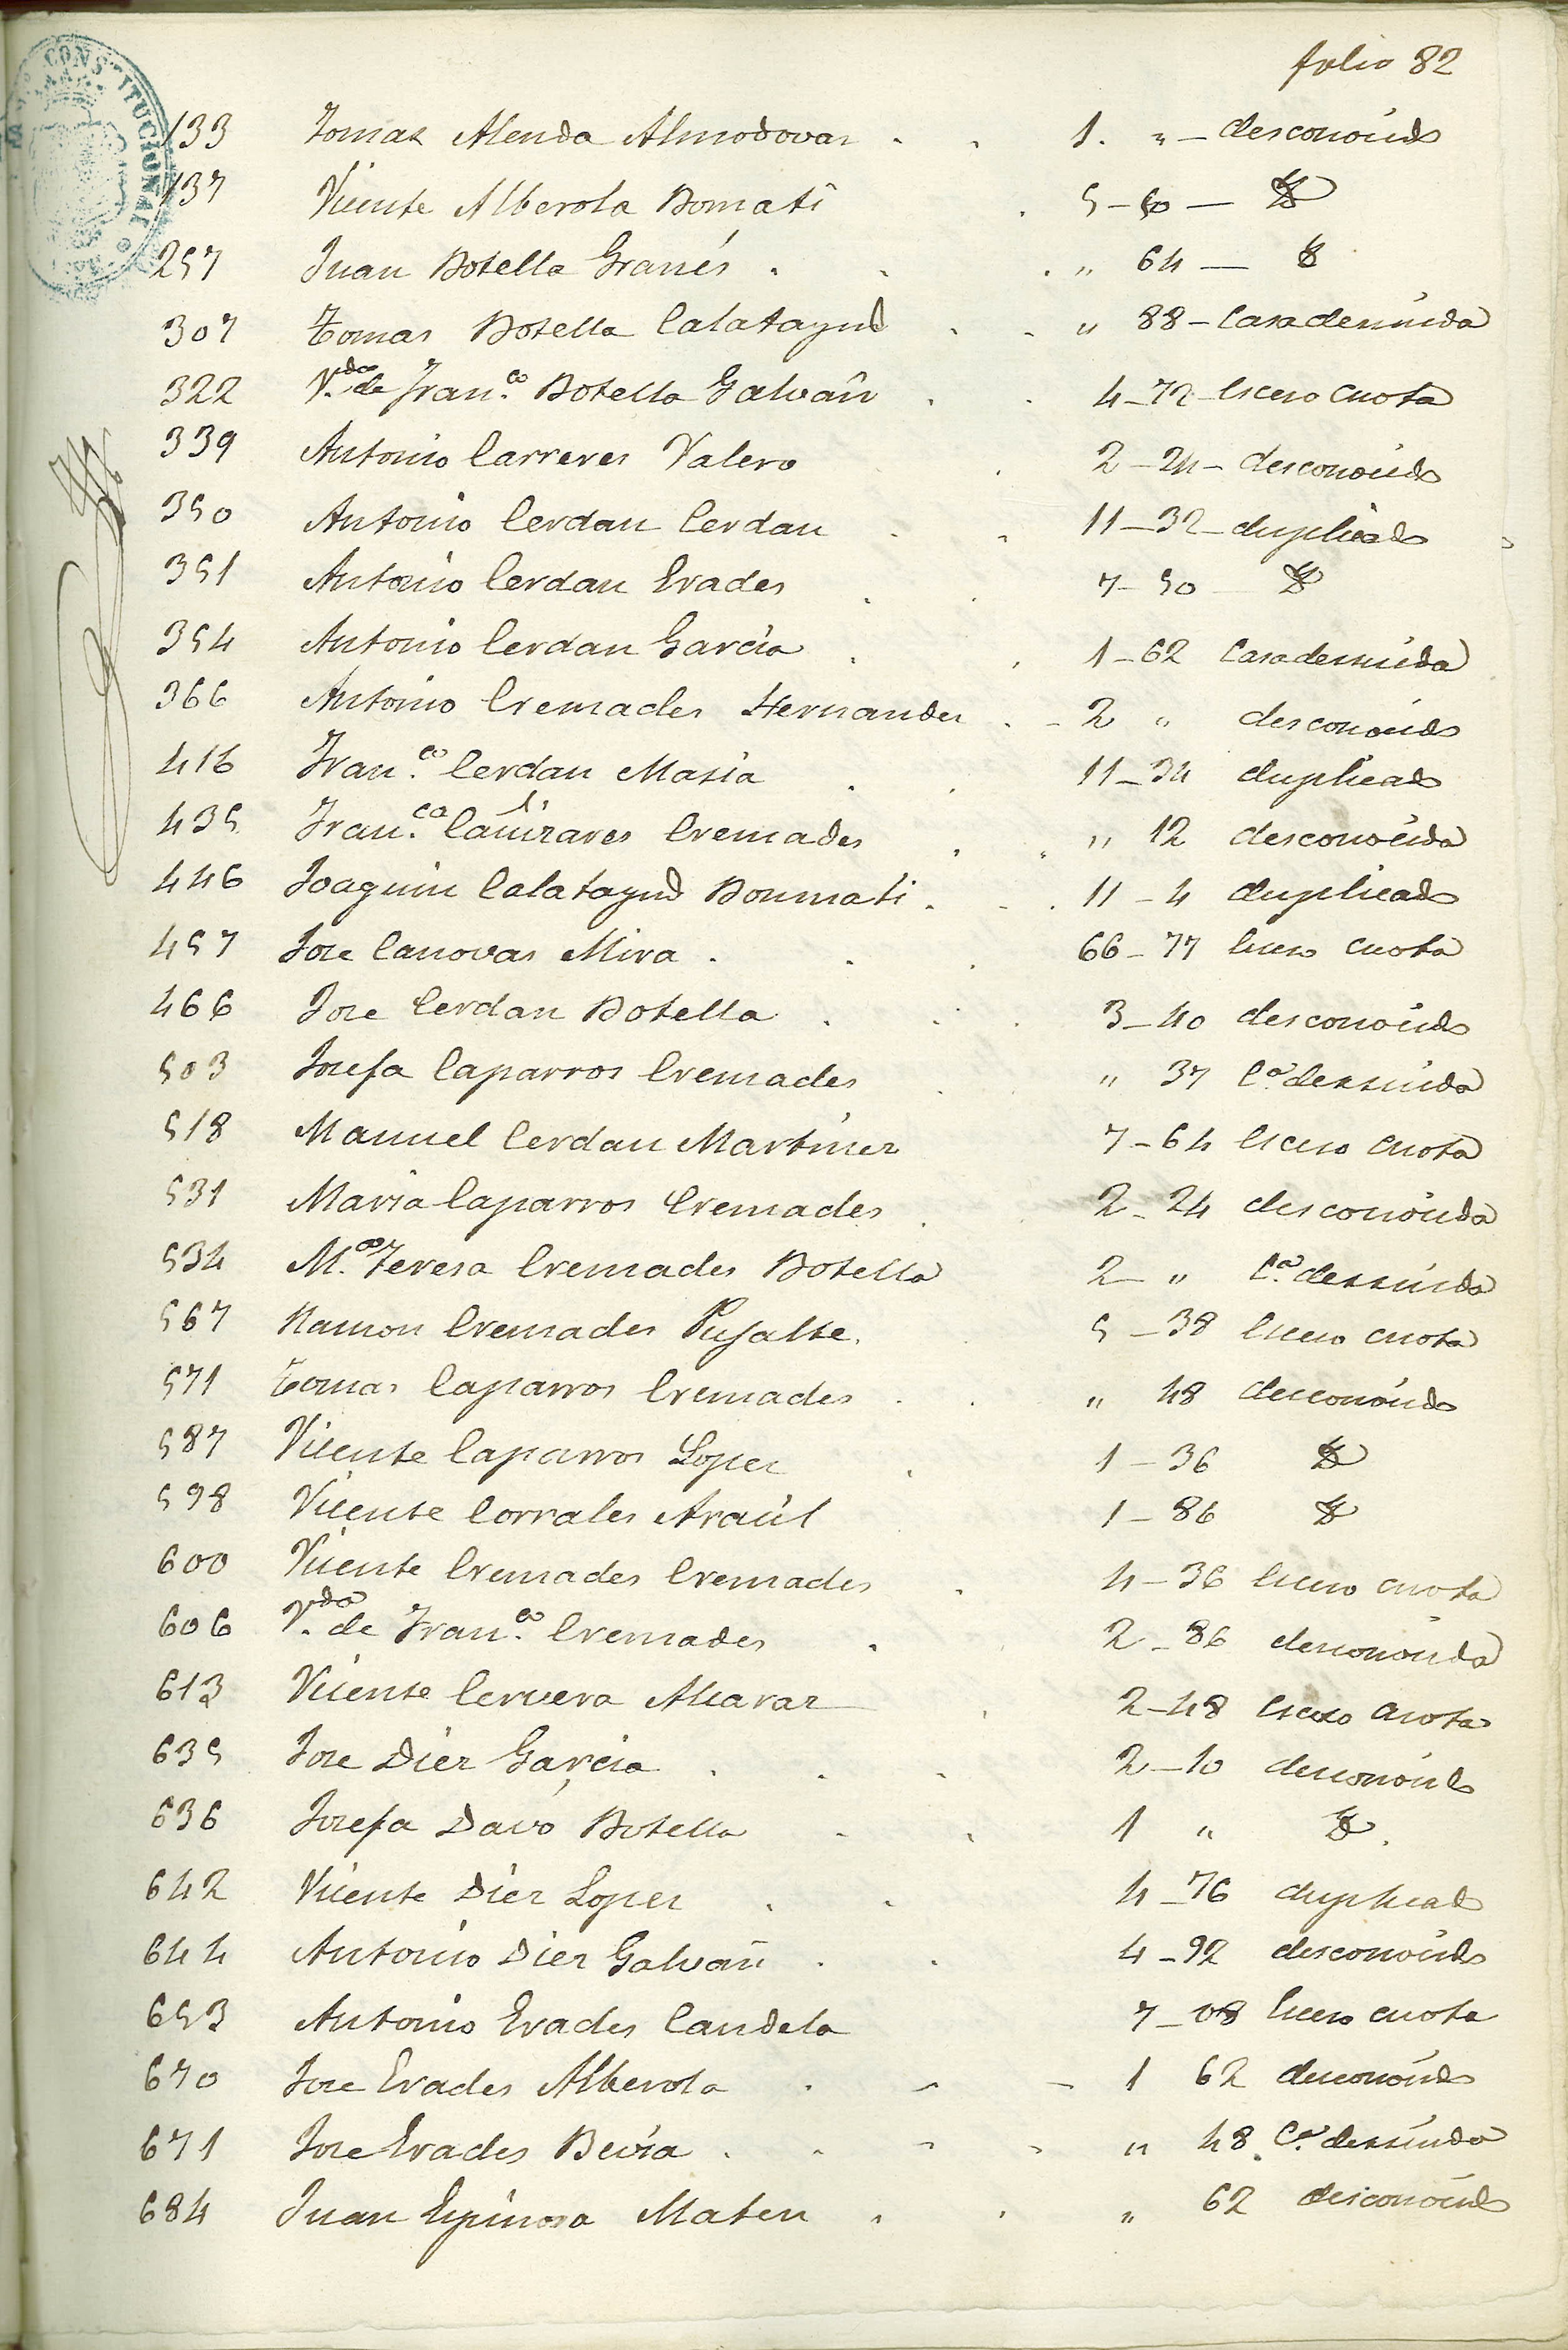 folio 82
CONSTITUCIONAL
133 Tomas Alenda Almodovar . . 1. " — desconocido
137 Vicente Alberola Bomati . 5 - 60 — Yd
257 Juan Botella Granés . . . " 64 — Yd
307 Tomas Botella Calatayud . . " 88 - Casa destruida
322 V.da de Fran.co Botella Galvañ . . 4 - 72 - Esceso cuota
339 Antonio Carreres Valero . 2 - 24 - desconocido
350 Antonio Cerdan Cerdan . . 11 - 32 - duplicado
351 Antonio Cerdan Erades . . 7 - 50 - Yd
354 Antonio Cerdan Garcia . . 1 - 62 Casa destruida
366 Antonio Cremades Hernandez . - 2 " desconocido
416 Fran.co Cerdan Masia . . 11 - 34 duplicado
435 Fran.ca Cañizares Cremades . . " 12 desconocida
446 Joaquin Calatayud Boumati . . . 11 - 4 duplicado
457 Jose Canovas Mira . . . 66 - 77 Esceso cuota
466 Jose Cerdan Botella . . . 3 - 40 desconocido
503 Josefa Caparros Cremades . " 37 C.a destruida
518 Manuel Cerdan Martinez 7 - 64 Esceso cuota
531 Maria Caparros Cremades . 2 - 24 desconocida
534 M.a Teresa Cremades Botella 2 - " C.a destruida
567 Ramon Cremades Pujalte . 5 - 38 Esceso cuota
571 Tomas Caparros Cremades . . " 48 desconocido
587 Vicente Caparros Lopez . 1 - 36 Yd
598 Vicente Corrales Araúl 1 - 86 Yd
600 Vicente Cremades Cremades . 4 - 36 Esceso cuota
606 V.da de Fran.co Cremades . 2 - 86 desconocida
613 Vicente Cervera Alcaraz . 2 - 48 Esceso cuota
635 Jose Diez Garcia . . . 2 - 10 desconocido
636 Josefa Davó Botella . . 1 " Yd.
642 Vicente Diez Lopez . . 4 - 76 duplicado
644 Antonio Diez Galvañ . . 4 - 92 desconocido
653 Antonio Erades Candela 7 - 08 Esceso cuota
670 Jose Erades Alberola . - - 1 62 desconocido
671 Jose Erades Bevia . . - . " 48 C.a destruida
684 Juan Espinosa Mateu . . " 62 desconocido